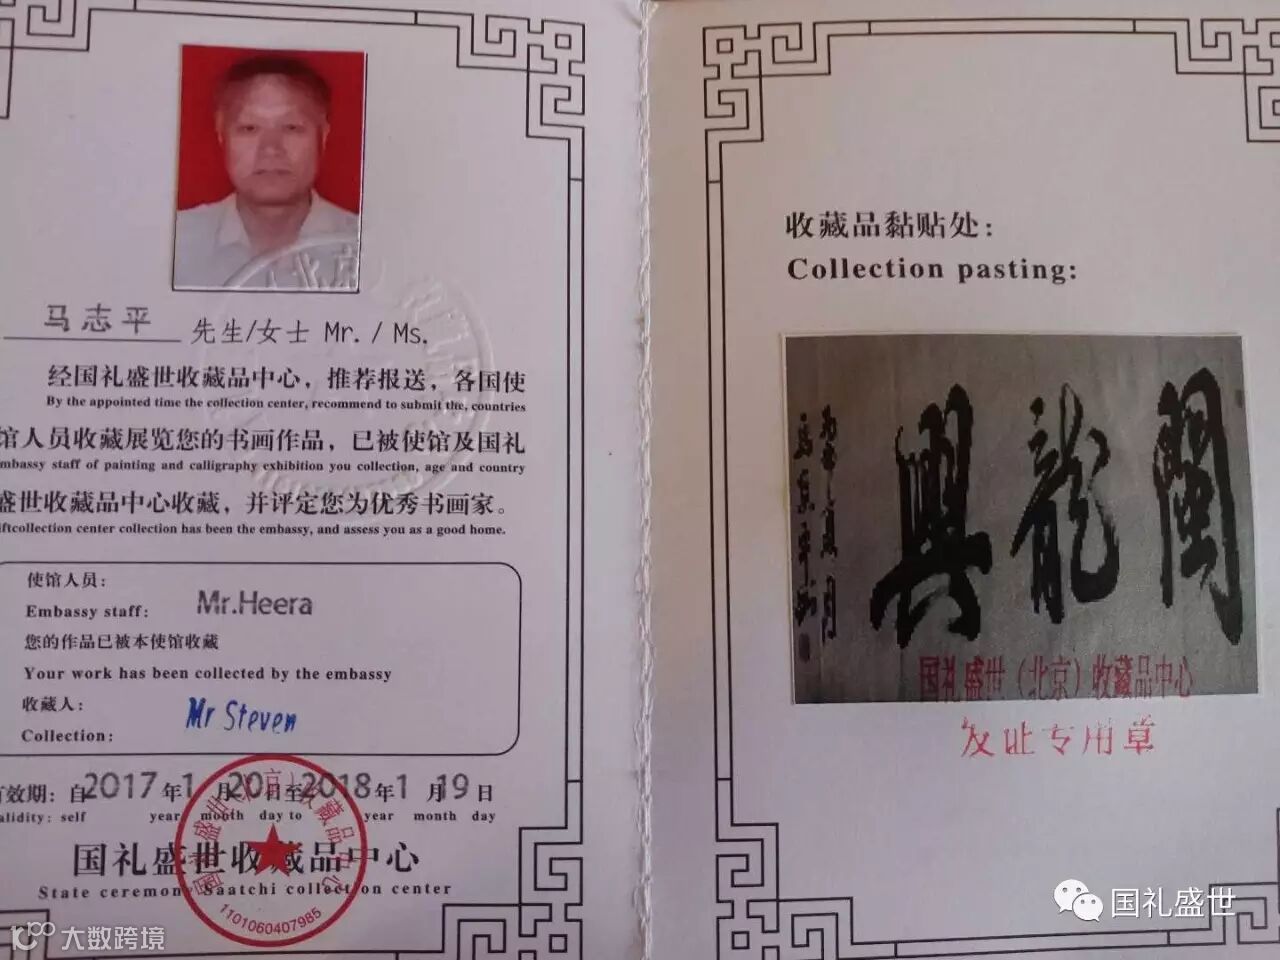 马志平 先生/女士 Mr. / Ms.
经国礼盛世收藏品中心，推荐报送，各国使
By the appointed time the collection center, recommend to submit the, countries
馆人员收藏展览您的书画作品，已被使馆及国礼
mbassy staff of painting and calligraphy exhibition you collection, age and country
盛世收藏品中心收藏，并评定您为优秀书画家。
iftcollection center collection has been the embassy, and assess you as a good home.
使馆人员：
Embassy staff: Mr.Heera
您的作品已被本使馆收藏
Your work has been collected by the embassy
收藏人：
Collection: Mr Steven
有效期：自2017年1月20日至2018年1月19日
alidity: self year month day to year month day
国礼盛世收藏品中心
State ceremony Saatchi collection center
国礼盛世（北京）收藏品中心
1101060407985
收藏品黏贴处：
Collection pasting:
興龍閩
国礼盛世（北京）收藏品中心
发证专用章
国礼盛世
大数跨境